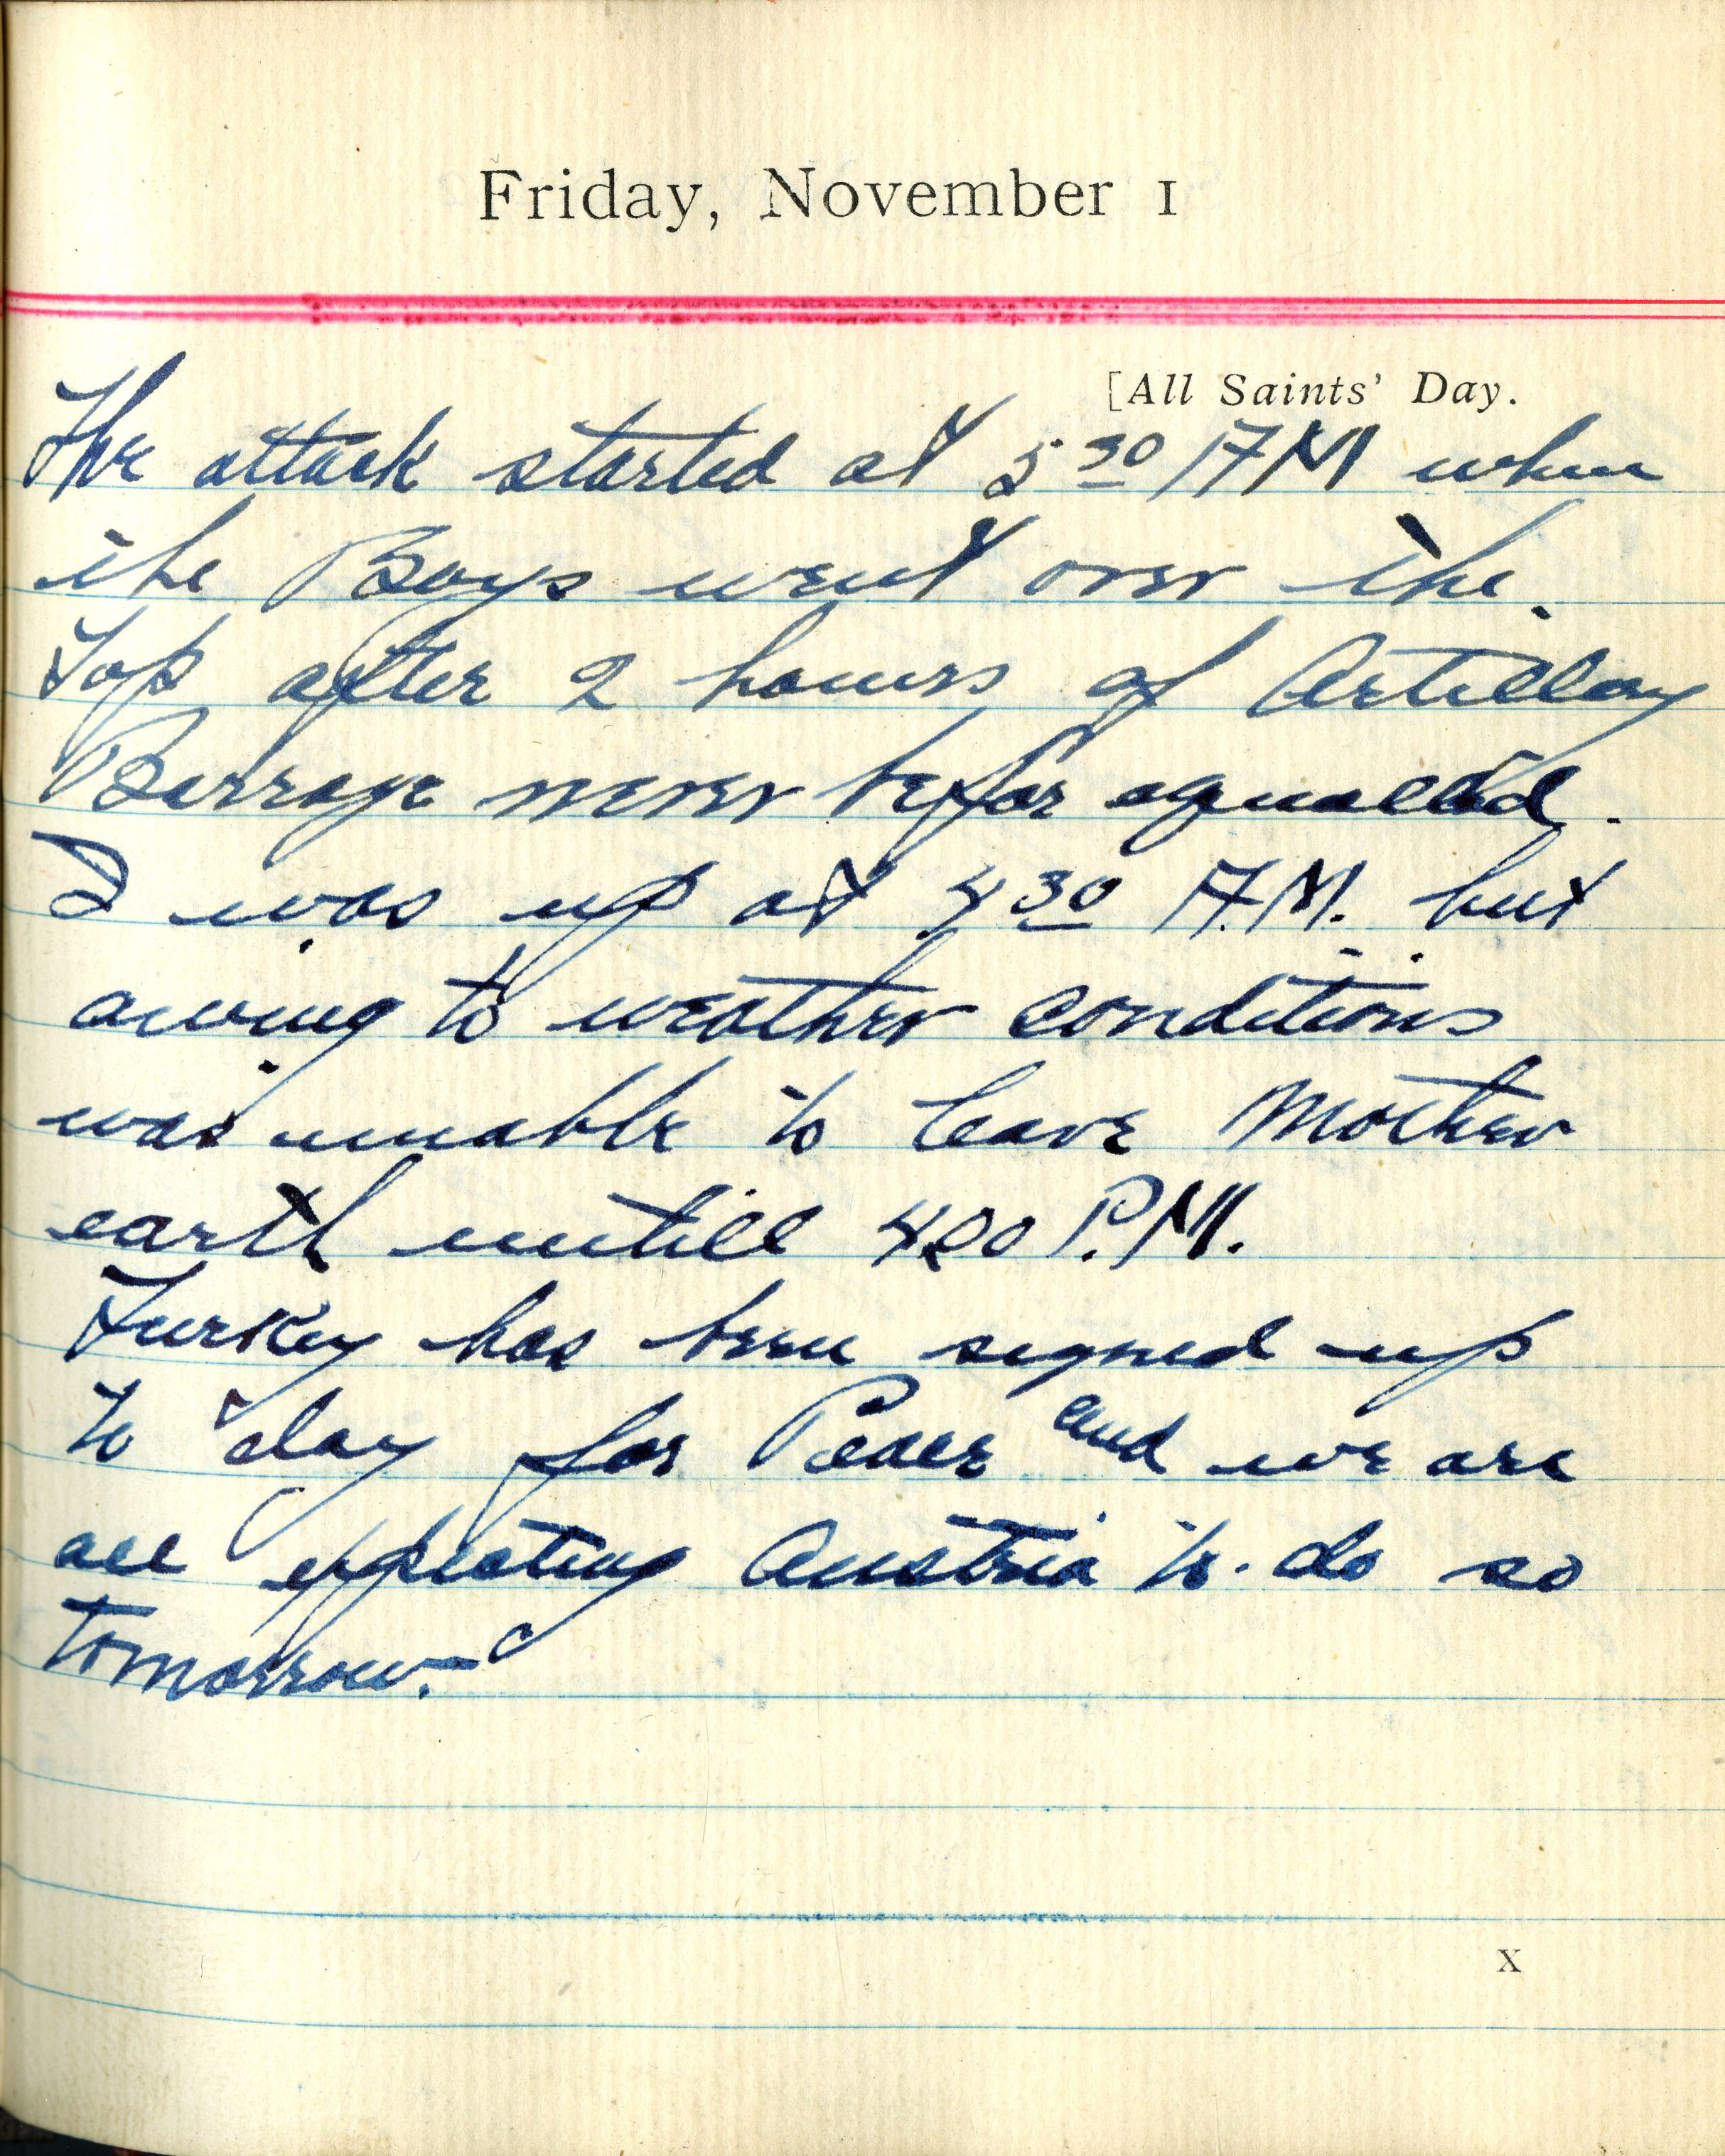 Friday, November 1
[All Saints' Day.
The attack started at 5 30 AM when
the Boys went over the
Top after 2 hours of Artillery
Barrage never befor equalled.
I was up at 4 30 A.M. but
owing to weather conditions
was unable to leave Mother
earth untill 400 P.M.
Turkey has been signed up
to day for Peace and we are
all expecting Austria to do so
tomorrow.
X